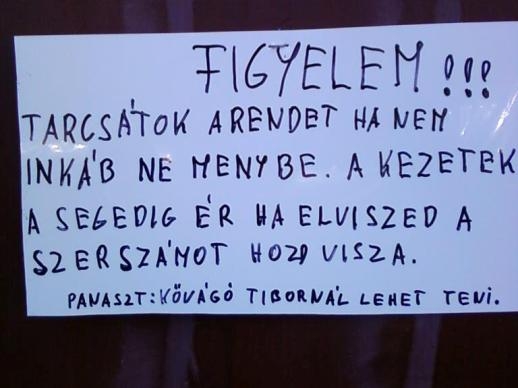 FIGYELEM !!!
TARCSÁTOK ARENDET HA NEM
INKÁB NE MENYBE. A KEZETEK
A SEGEDIG ÉR HA ELVISZED A
SZERSZÁMOT HOZD VISZA.
PANASZT: KŐVÁGÓ TIBORNÁL LEHET TENI.